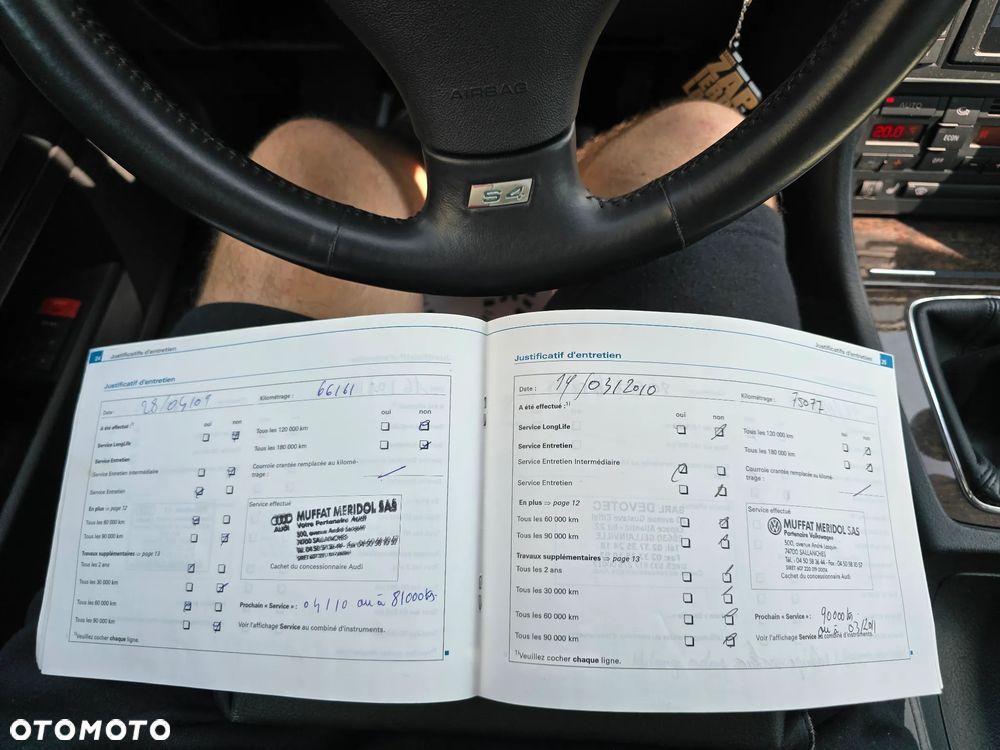 AIRBAG
S4
AUTO
20.0
ECON
OFF
24 Justificatifs d'entretien
Justificatif d'entretien
Date : 28/04/09
Kilométrage : 66161
A été effectué :¹⁾
oui non
oui non
Service LongLife
Tous les 120 000 km
Service Entretien
Tous les 180 000 km
Service Entretien Intermédiaire
Courroie crantée remplacée au kilomé-
trage :
Service Entretien
En plus ⇒ page 12
Service effectué
Tous les 60 000 km
AUDI
MUFFAT MERIDOL SAS
Votre Partenaire Audi
Tous les 90 000 km
500, avenue André Lasquin
74700 SALLANCHES
Travaux supplémentaires ⇒ page 13
Cachet du concessionnaire Audi
Tous les 2 ans
Tous les 30 000 km
Tous les 60 000 km
Prochain « Service » : 04/10 ou à 81000km
Tous les 90 000 km
Voir l'affichage Service au combiné d'instruments.
¹⁾Veuillez cocher chaque ligne.
Justificatifs d'entretien 25
Justificatif d'entretien
Date : 19/03/2010
Kilométrage : 75077
A été effectué :¹⁾
oui non
oui non
Service LongLife
Tous les 120 000 km
Service Entretien
Tous les 180 000 km
Service Entretien Intermédiaire
Courroie crantée remplacée au kilomé-
trage :
Service Entretien
En plus ⇒ page 12
Service effectué
Tous les 60 000 km
MUFFAT MERIDOL SAS
Partenaire Volkswagen
Tous les 90 000 km
500, avenue André Lasquin
74700 SALLANCHES
Travaux supplémentaires ⇒ page 13
Tél. : 04 50 58 36 44 - Fax : 04 50 58 10 57
Cachet du concessionnaire Audi
Tous les 2 ans
Tous les 30 000 km
Tous les 60 000 km
Prochain « Service » : 90000km
ou à 03/2011
Tous les 90 000 km
Voir l'affichage Service au combiné d'instruments.
¹⁾Veuillez cocher chaque ligne.
OTOMOTO